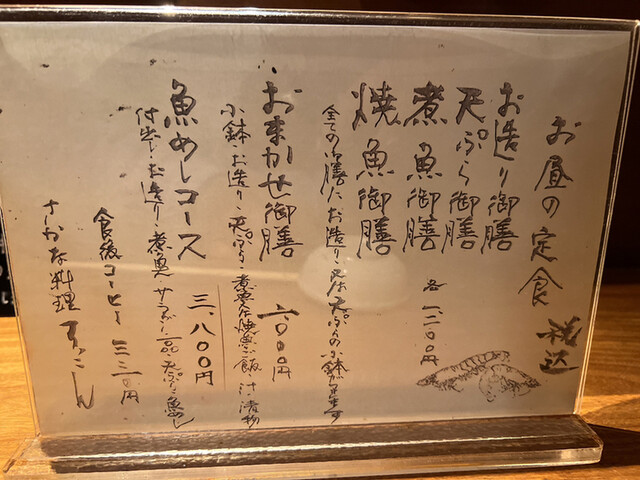 お昼の定食 税込
お造り御膳
天ぷら御膳
煮魚御膳 各 一、二〇〇円
焼魚御膳
全ての御膳にお造り、又は天ぷらの小鉢が付きます
おまかせ御膳 二、〇〇〇円
小鉢、お造り、天ぷら、煮魚又は焼魚、ご飯、汁、漬物
魚めしコース 三、八〇〇円
付出し、お造り、煮魚、サラダ、一品、天ぷら、魚めし
食後コーヒー 三三〇円
さかな料理